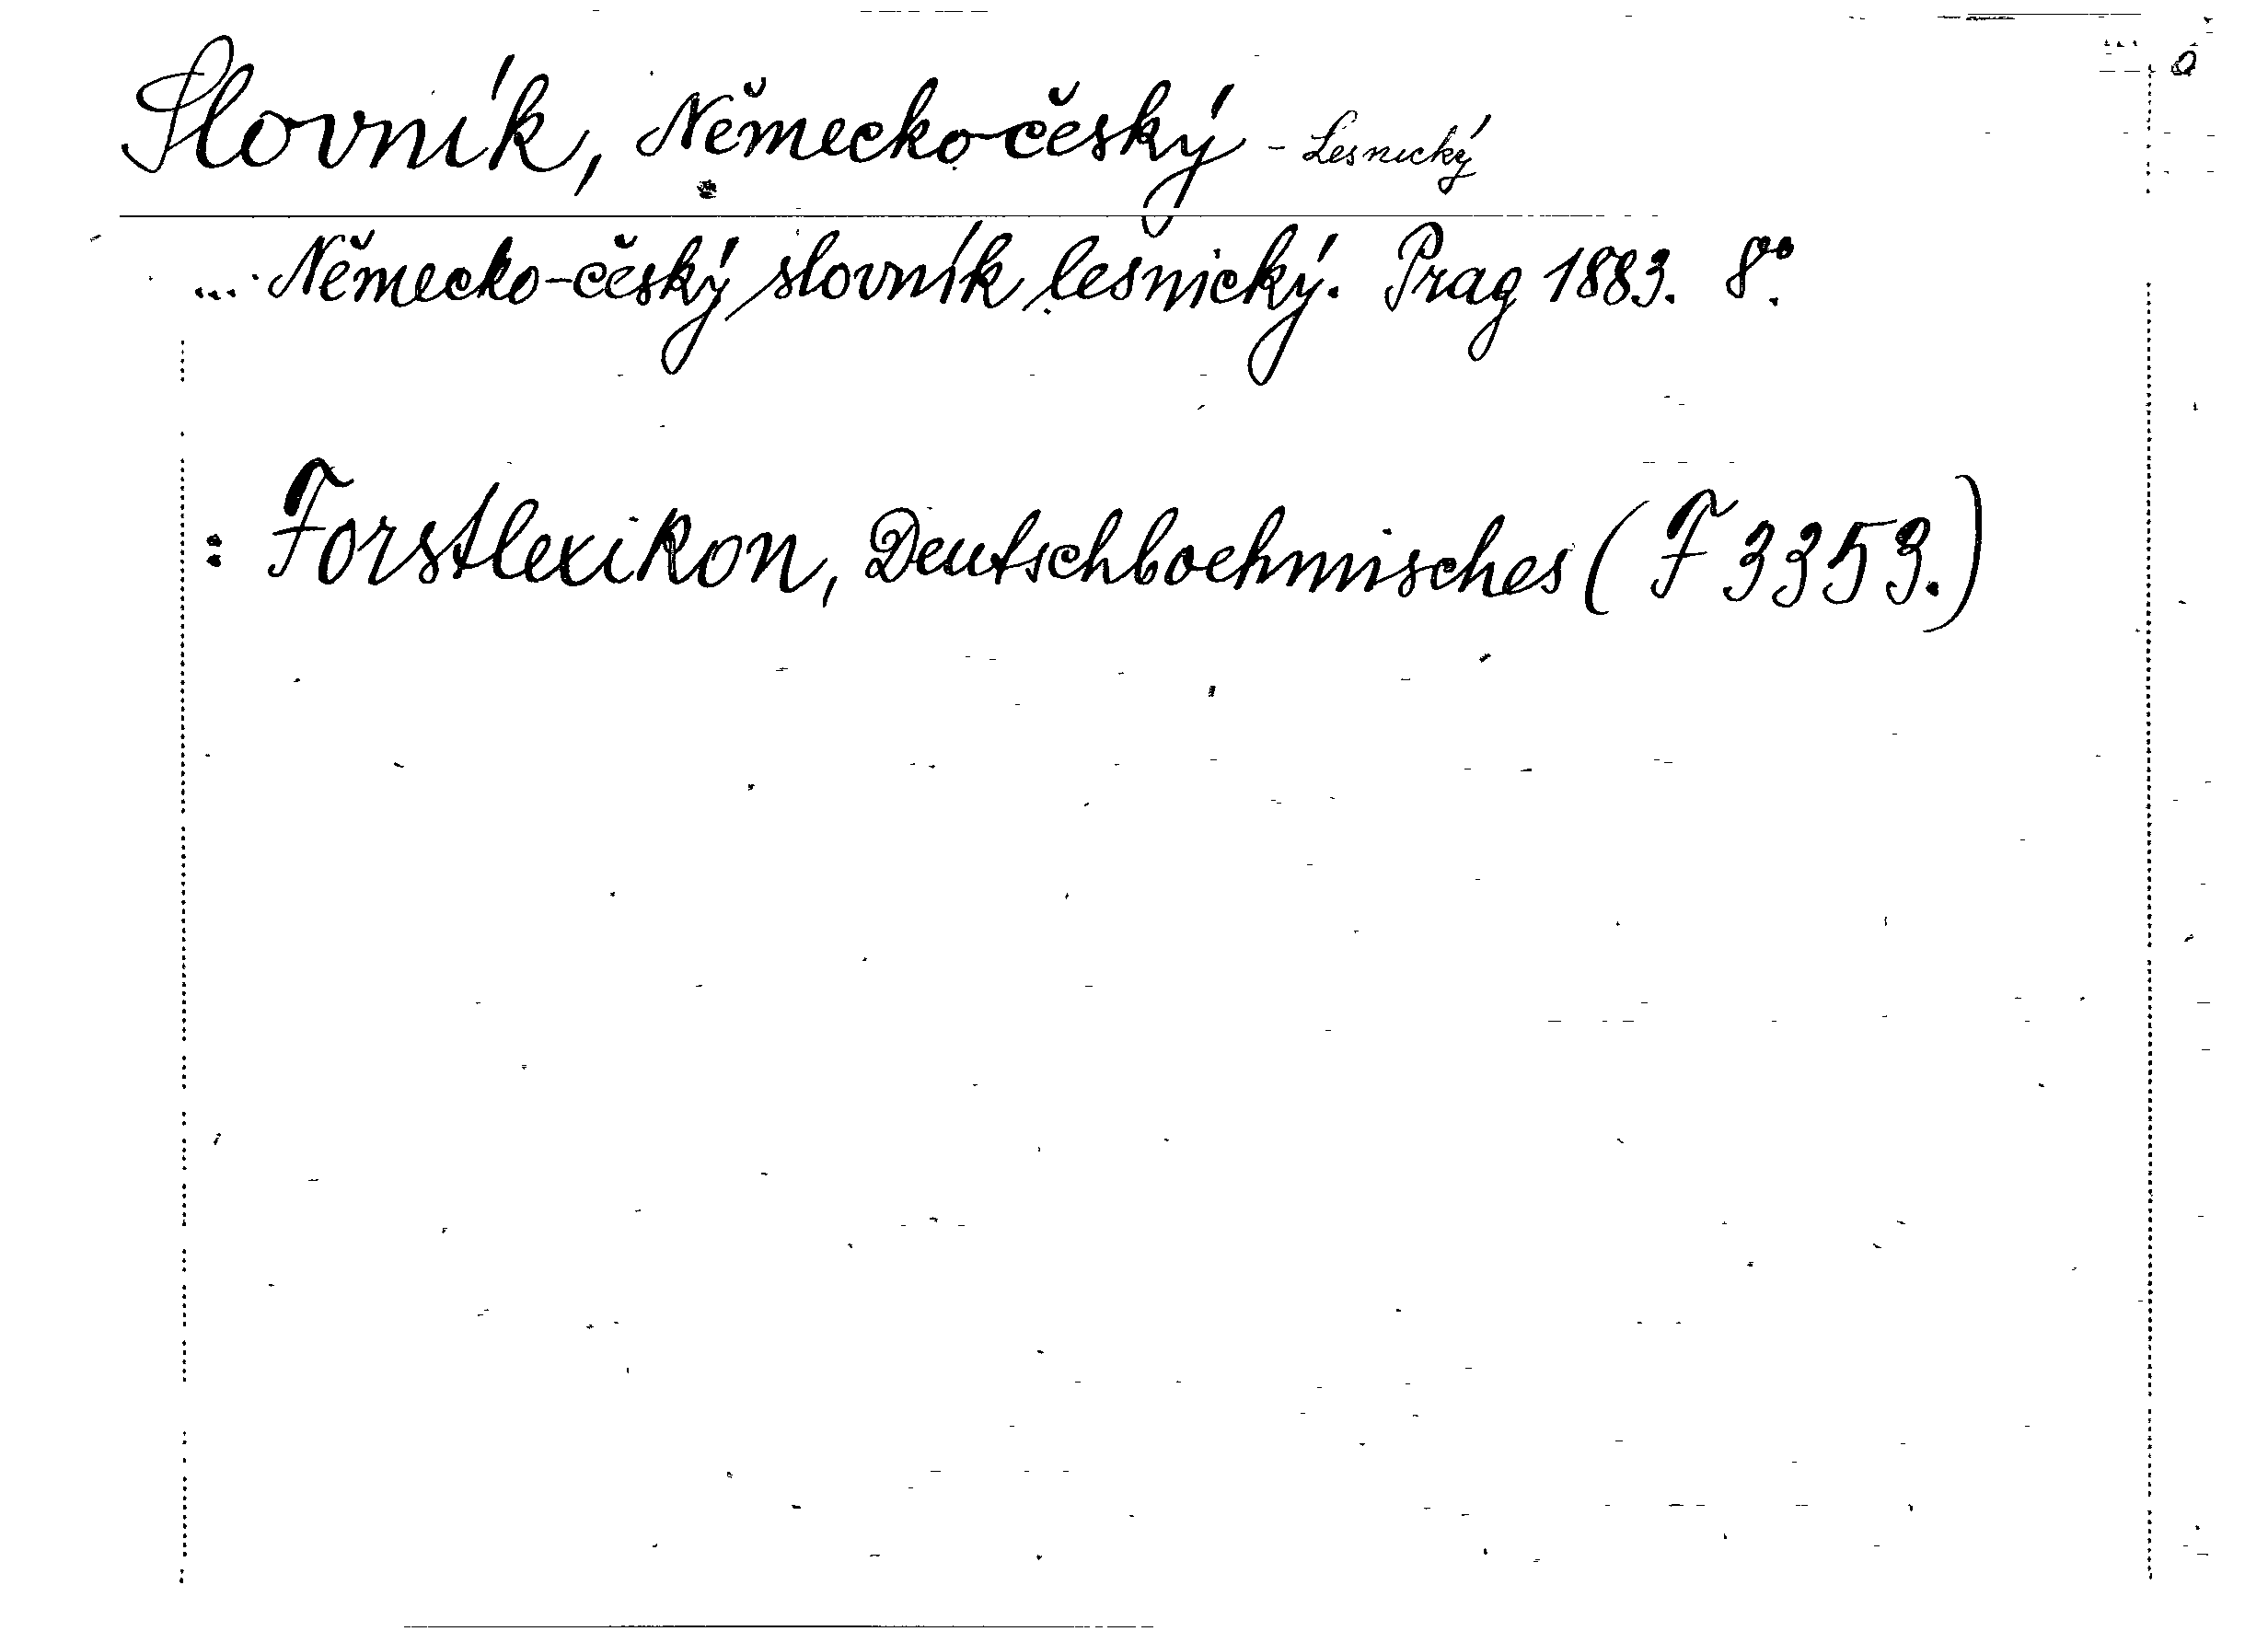 Slovník, Německo-český - Lesnický
... Německo-český slovník lesnický. Prag 1883. 8º.
: Forstlexikon, Deutschboehmisches (F 3353.)